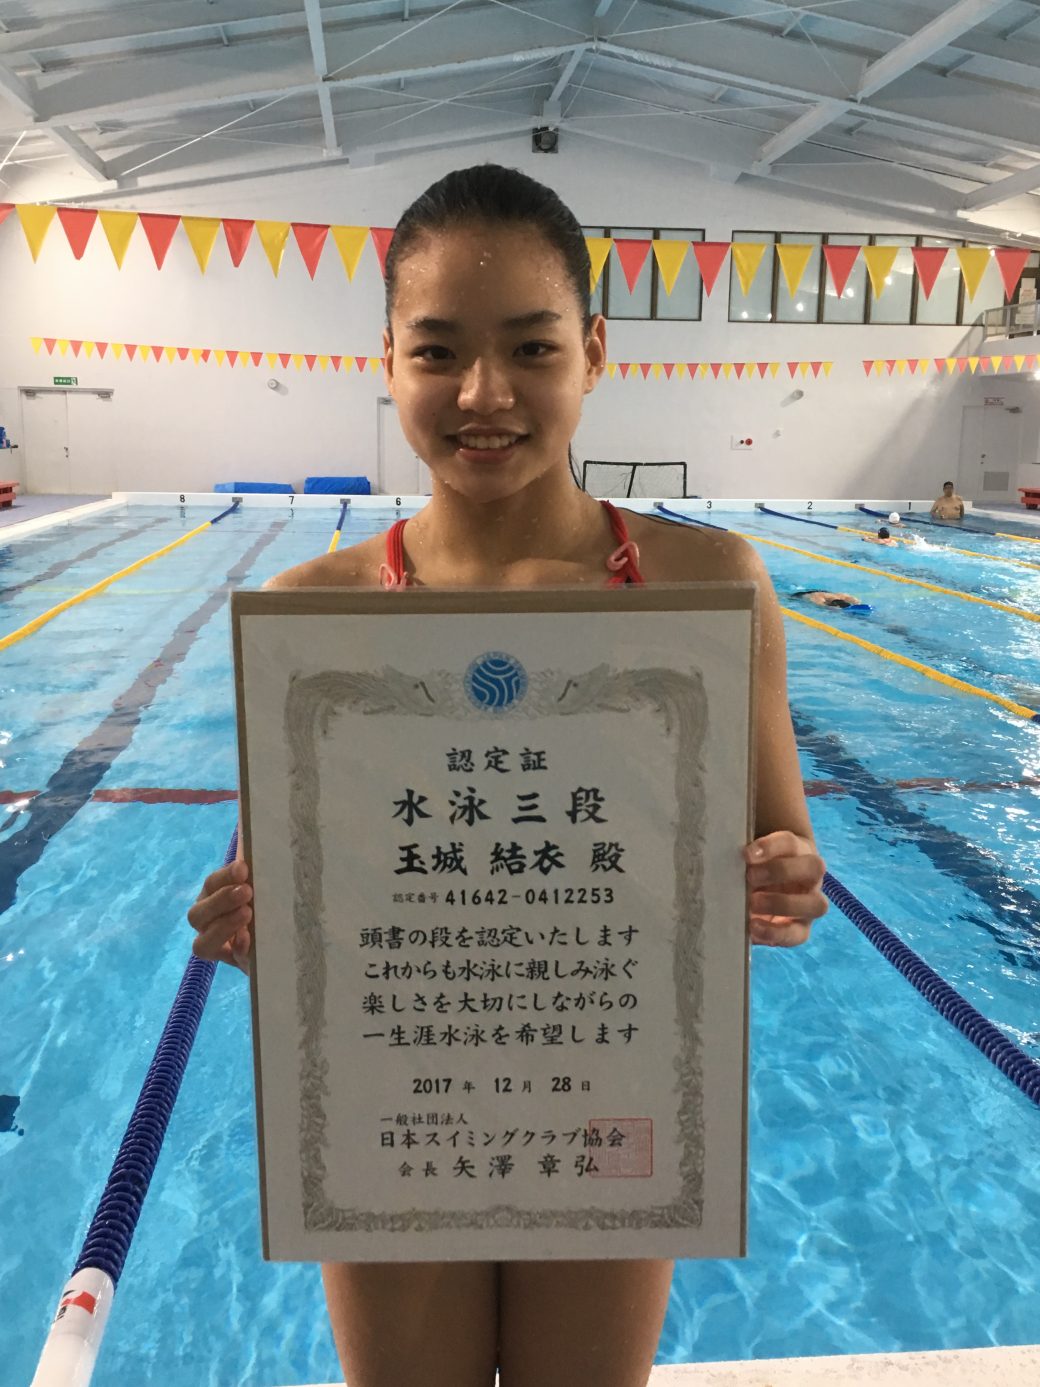 8 7 6 3 2 1
認定証
水泳三段
玉城 結衣 殿
認定番号 41642-0412253
頭書の段を認定いたします
これからも水泳に親しみ泳ぐ
楽しさを大切にしながらの
一生涯水泳を希望します
2017 年 12 月 28 日
一般社団法人
日本スイミングクラブ協会
会長 矢澤 章弘